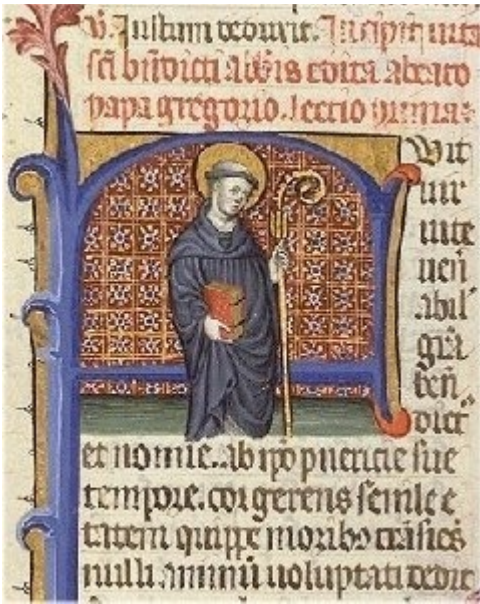 V. Justum deduxit. Incipit uita
sci bndicti abbis edita a beato
papa gregorio. lectio prima.
uit
uir
uite
uen
abil
gra
ben
dict
et nomie. ab ipo puericie sue
tempore. cor gerens senile e
tatem quippe moribo trasies
nulli animu uoluptati dedit